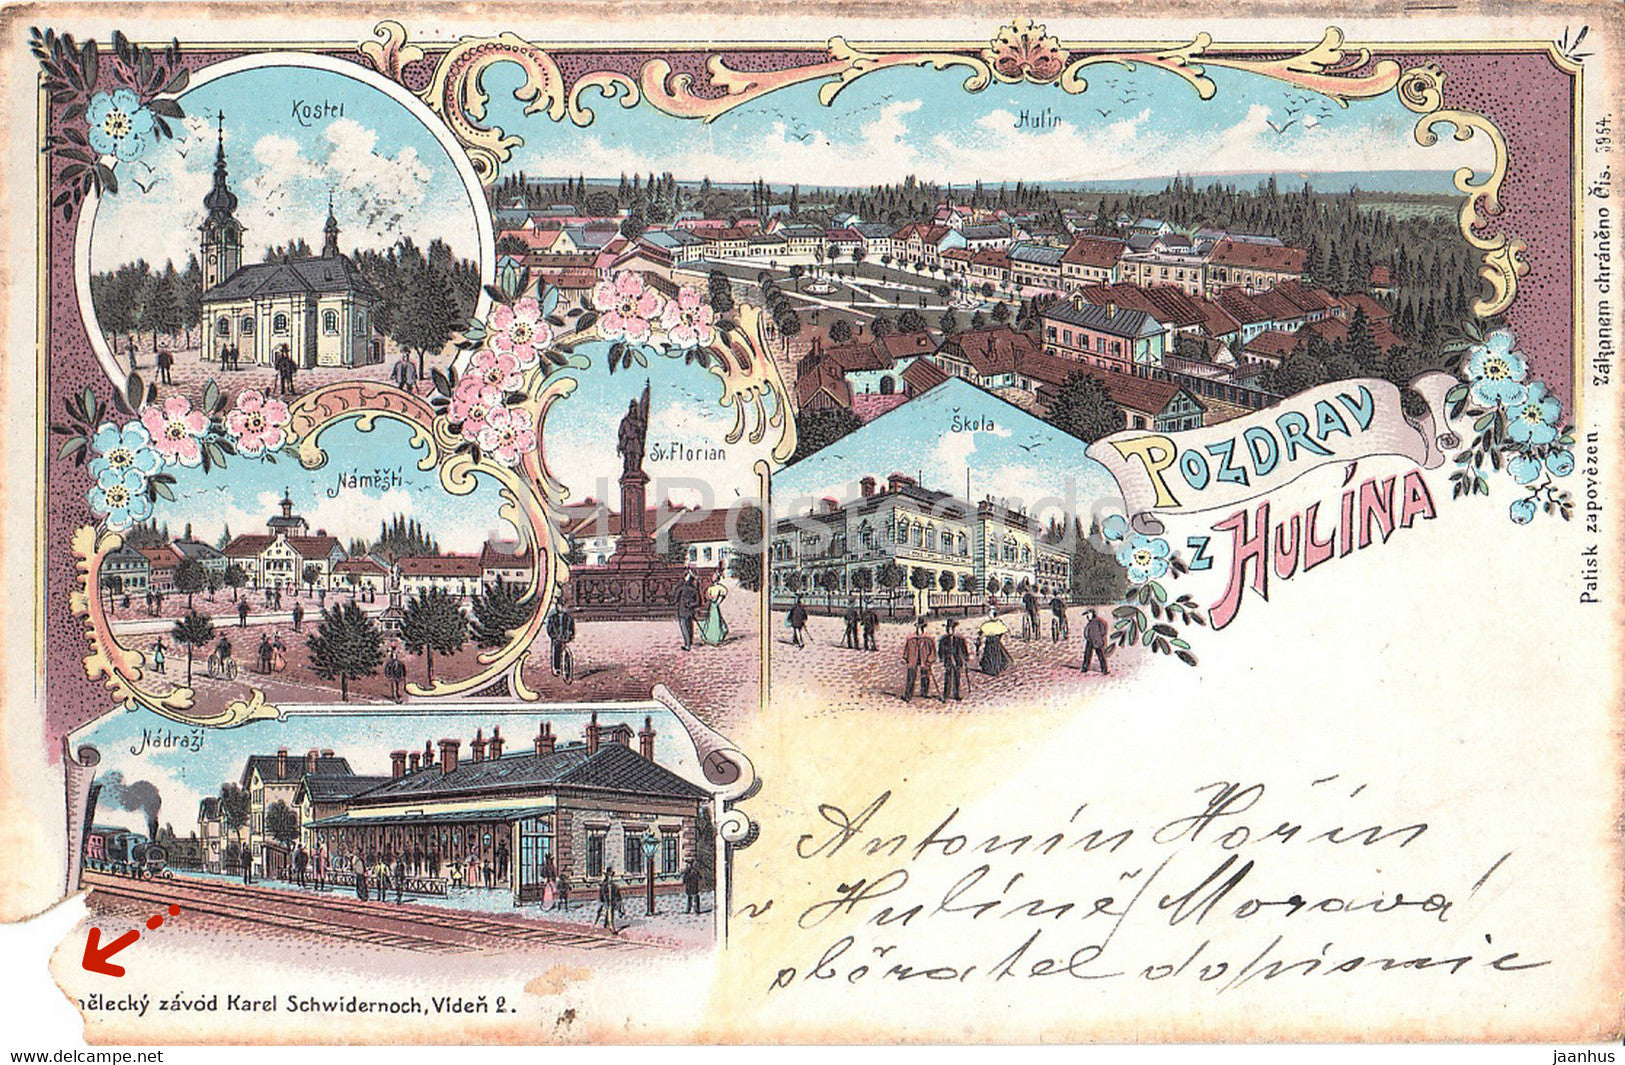 Kostel
Hulín
Náměští
Sv. Florian
Škola
POZDRAV
Z HULÍNA
Nádraží
Antonín Hořín
v Hulíně / Morava
sběratel dopisnic
Patisk zapovězen. Zákonem chráněno Čís. 3954.
mělecký závod Karel Schwidernoch, Vídeň 2.
JH Postcards
www.delcampe.net
jaanhus